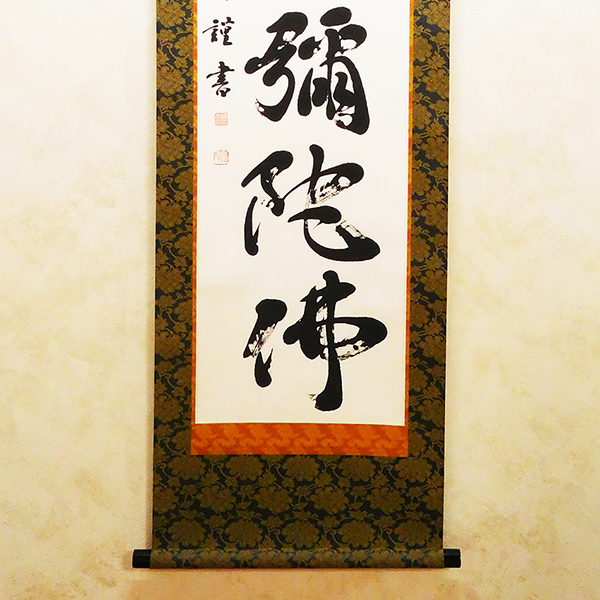 彌陀佛
謹書